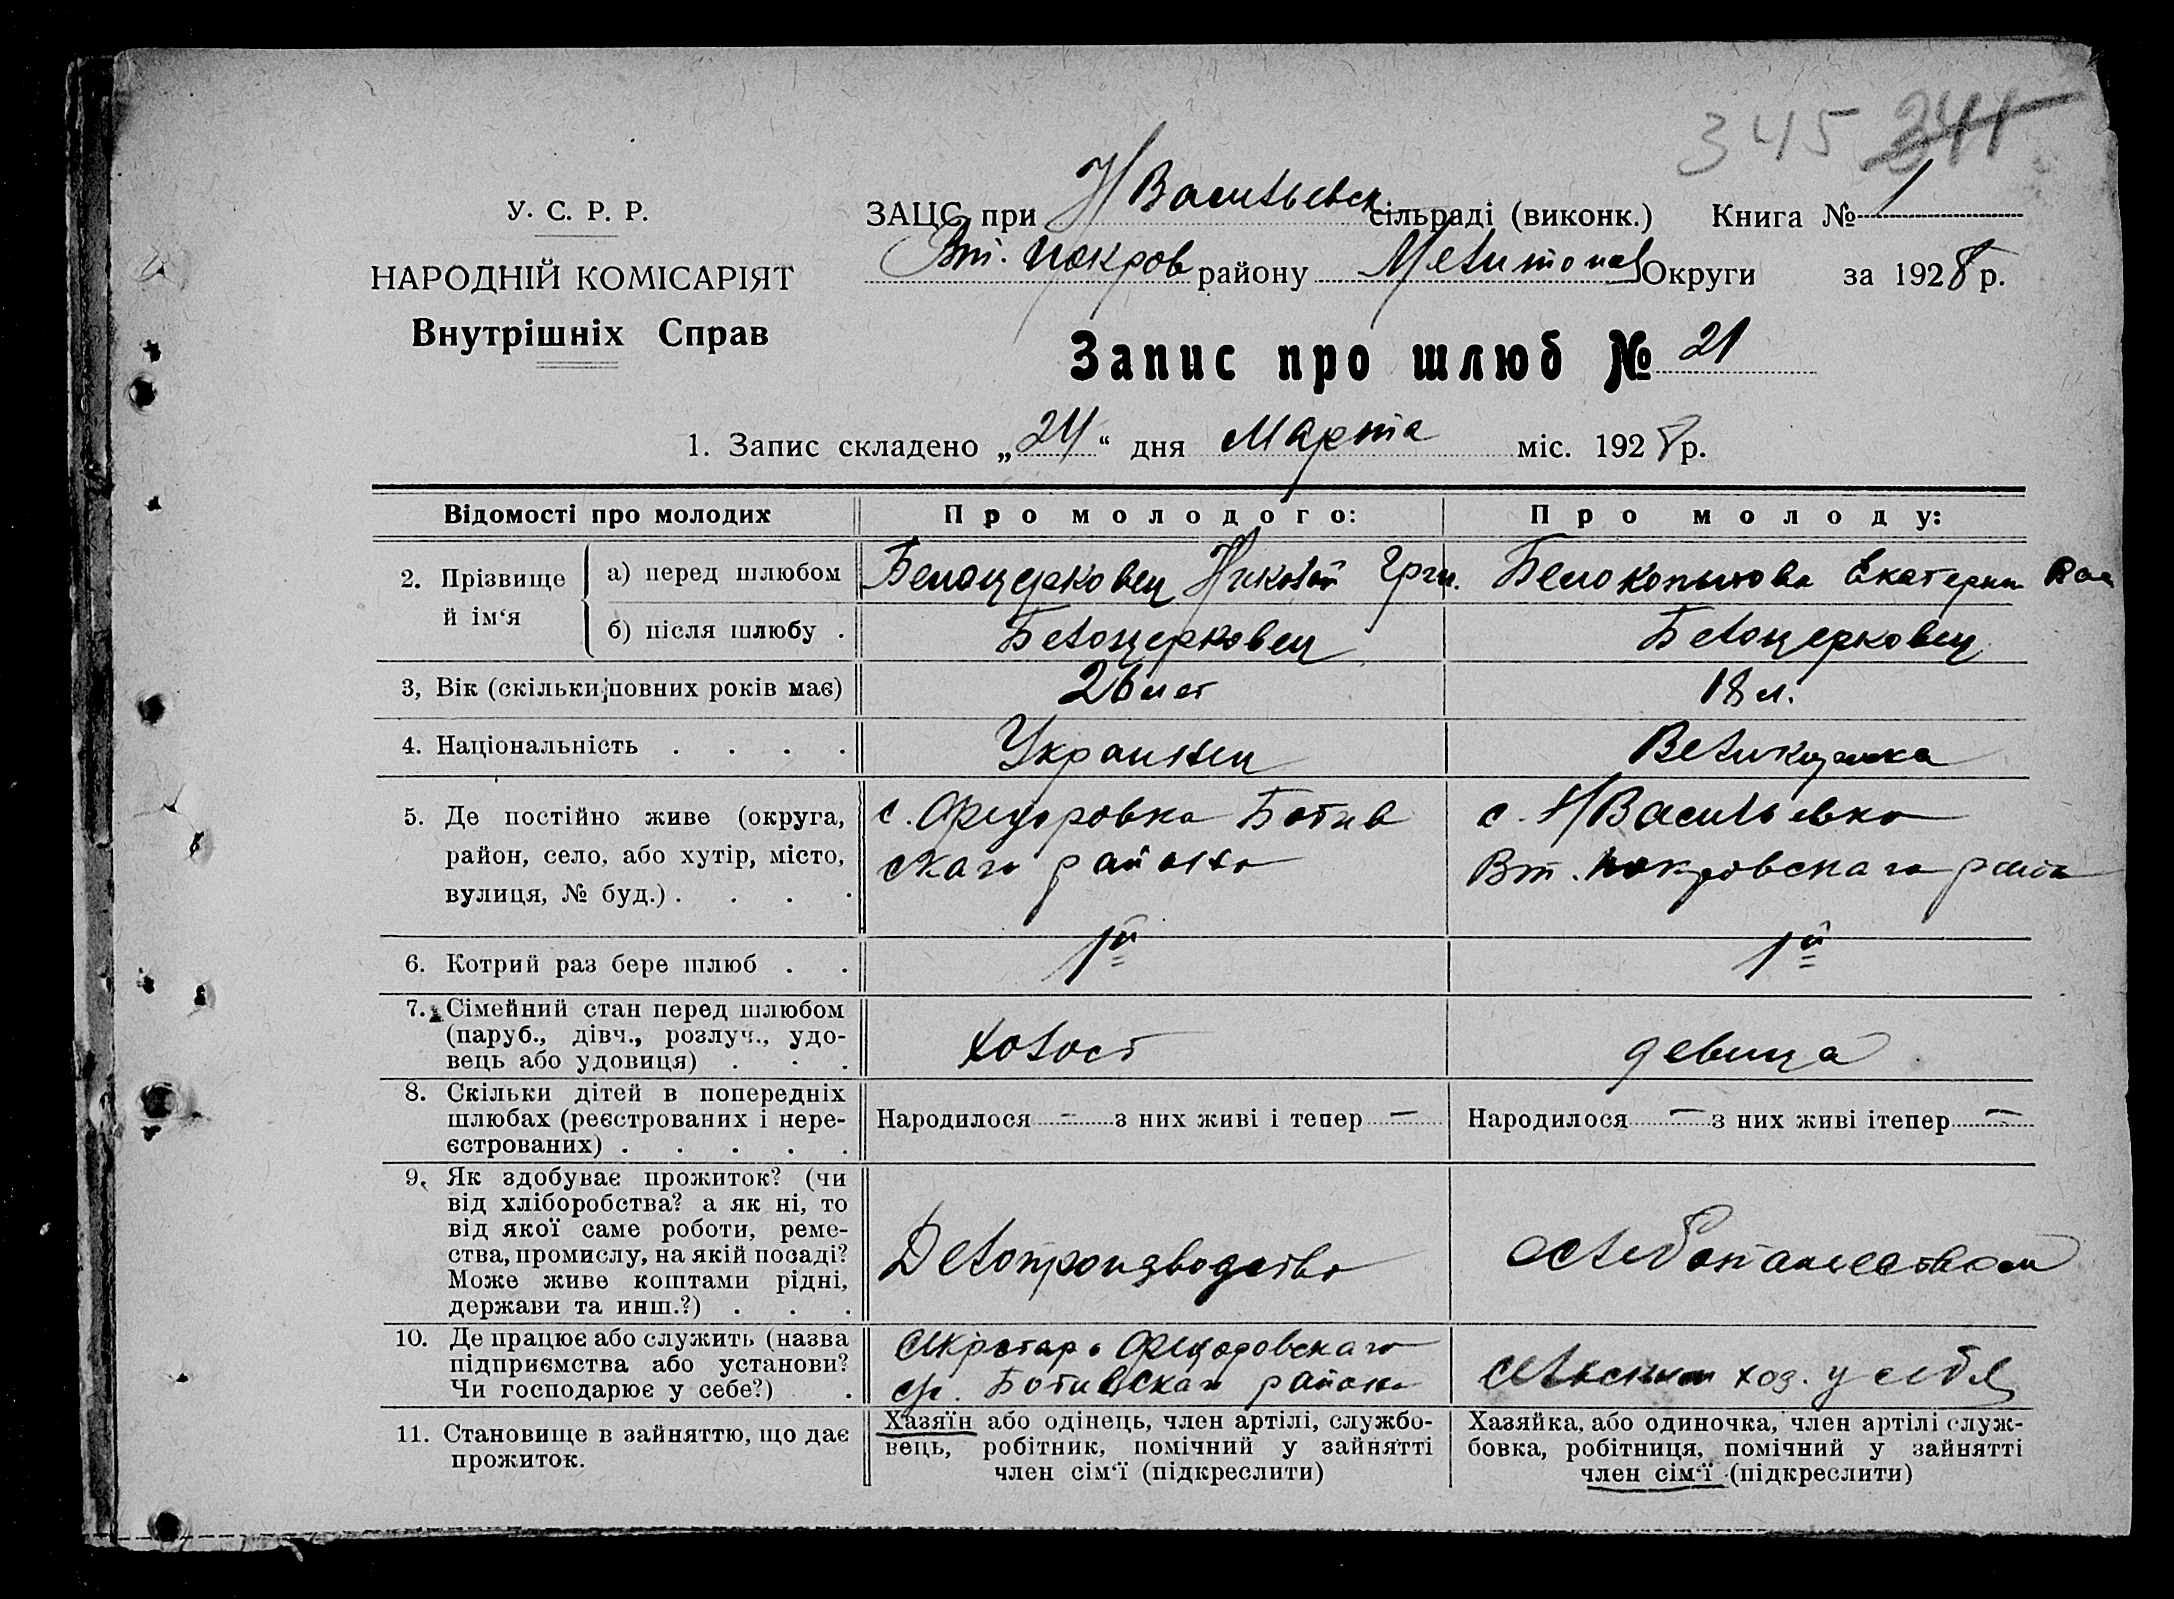 345 341
У. С. Р. Р.
НАРОДНІЙ КОМІСАРІЯТ
Внутрішніх Справ
ЗАЦС при Н Васильевск. сільраді (виконк.) Книга № 1
Вт. Покров району Мелитопол Округи за 1928 р.
Запис про шлюб № 21
1. Запис складено „24“ дня Марта міс. 1928 р.
Відомості про молодих
Про молодого:
Про молоду:
2. Прізвище й ім‘я
а) перед шлюбом
Белоцерковец Николай Григ.
Белокопытова Екатерин Вас
б) після шлюбу .
Белоцерковец
Белоцерковец
3, Вік (скільки повних років має)
26 лет
18 л.
4. Національність . . . .
Украинец
Великорусска
5. Де постійно живе (округа,
район, село, або хутір, місто,
вулиця, № буд.) . . . .
с. Федоровка Ботив
скаго района
с. Н Васильевка
Вт. Покровскаго района
6. Котрий раз бере шлюб . .
1й
1й
7. Сімейний стан перед шлюбом
(паруб., дівч., розлуч., удо-
вець або удовиця) . . .
холост
девица
8. Скільки дітей в попередніх
шлюбах (реєстрованих і нере-
єстрованих) . . . . .
Народилося — з них живі і тепер —
Народилося — з них живі ітепер —
9. Як здобуває прожиток? (чи
від хліборобства? а як ні, то
від якої саме роботи, реме-
ства, промислу, на якій посаді?
Може живе коштами рідні,
держави та инш.?) . . .
Делопроизводство
хлебопашеством
10. Де працює або служить (назва
підприємства або установи?
Чи господарює у себе?) .
секретарь Федоровскаго
с/с. Ботивскаго района
сельским хоз. у себя
11. Становище в зайняттю, що дає
прожиток.
Хазяїн або одінець, член артілі, службо-
вець, робітник, помічний у зайнятті
член сім‘ї (підкреслити)
Хазяйка, або одиночка, член артілі служ-
бовка, робітниця, помічний у зайнятті
член сім‘ї (підкреслити)